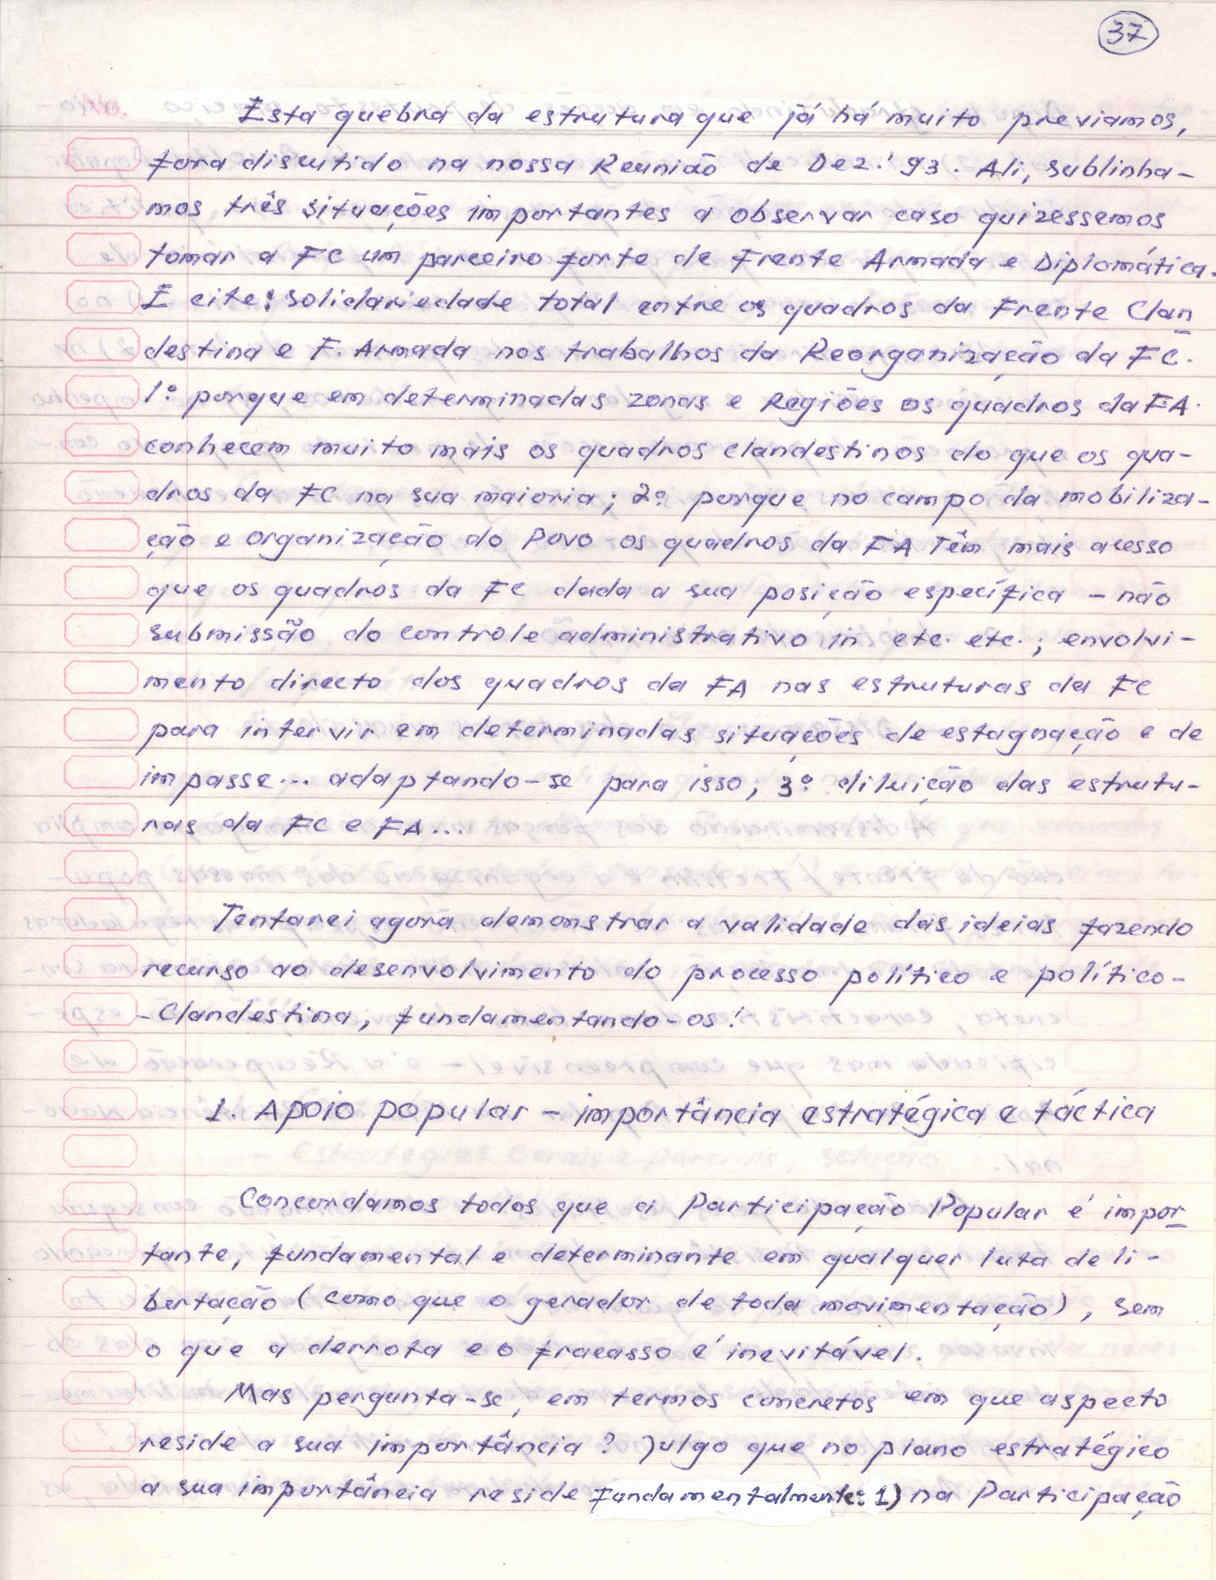 37
Esta quebra da estrutura que já há muito previamos,
fora discutido na nossa Reunião de Dez.' 93. Ali, sublinha-
mos três situações importantes a observar caso quizessemos
tomar a FC um parceiro forte de Frente Armada e Diplomática.
E cite: Solidariedade total entre os quadros da Frente Clan
destina e F. Armada nos trabalhos da Reorganização da FC.
1º porque em determinadas zonas e Regiões os quadros da FA.
conhecem muito mais os quadros clandestinos do que os qua-
dros da FC na sua maioria; 2º porque no campo da mobiliza-
ção e organização do Povo os quadros da FA Têm mais acesso
que os quadros da FC dada a sua posição específica - não
submissão do controle administrativo in etc. etc.; envolvi-
mento directo dos quadros da FA nas estruturas da FC
para intervir em determinadas situações de estagnação e de
impasse... adaptando-se para isso; 3º diluição das estrutu-
ras da FC e FA...
Tentarei agora demonstrar a validade das ideias fazendo
recurso ao desenvolvimento do processo político e político-
-Clandestina, fundamentando-os!
1. Apoio popular - importância estratégica e táctica
Concordamos todos que a Participação Popular é impor
tante, fundamental e determinante em qualquer luta de li-
bertação (como que o gerador de toda movimentação), sem
o que a derrota e o fracasso é inevitável.
Mas pergunta-se, em termos concretos em que aspecto
reside a sua importância? Julgo que no plano estratégico
a sua importância reside fundamentalmente: 1) na Participação